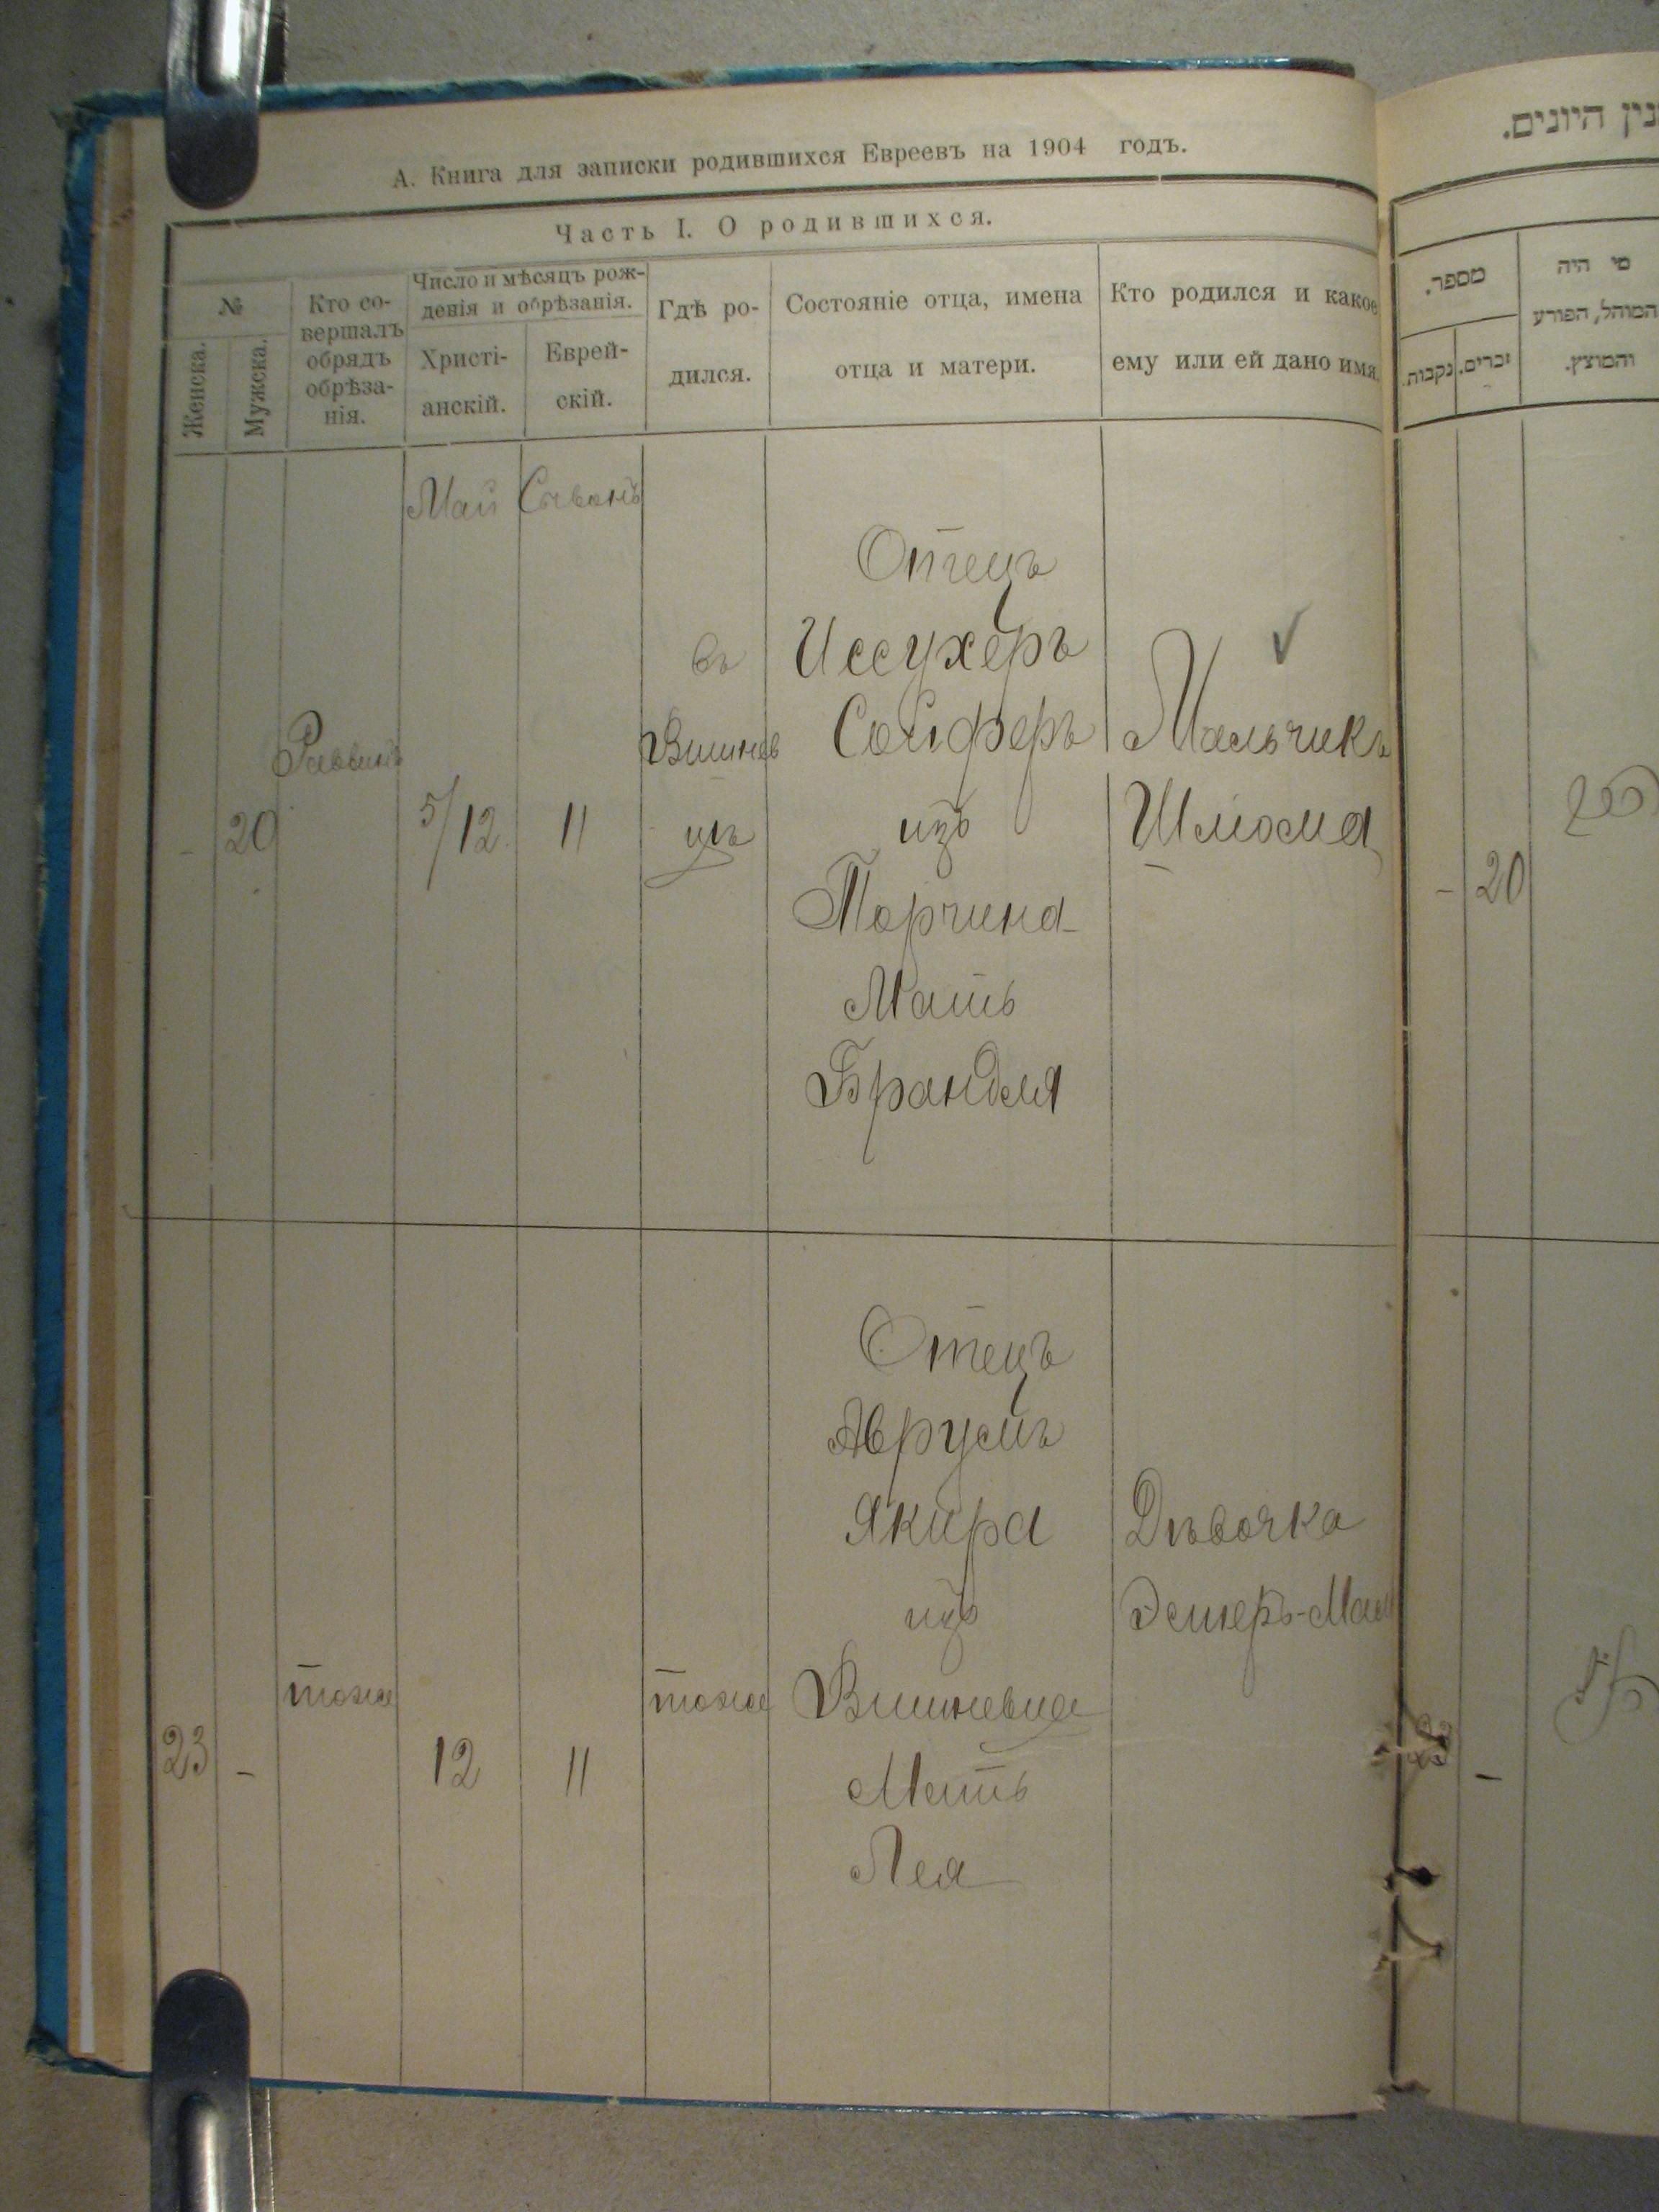 А. Книга для записки родившихся Евреевъ на 1904 годъ.
Часть I. О родившихся.
№
Женска.
Мужска.
Кто со-
вершалъ
обрядъ
обрѣза-
нія.
Число и мѣсяцъ рож-
денія и обрѣзанія.
Христі-
анскій.
Еврей-
скій.
Гдѣ ро-
дился.
Состояніе отца, имена
отца и матери.
Кто родился и какое
ему или ей дано имя.
Май Сиванъ
-
20
Раввинъ
5/12
11
въ
Вишнев
цѣ
Отецъ
Иссухеръ
Сойферъ
изъ
Торчина
Мать
Брандля
Мальчикъ
Шлиома
23
-
тоже
12
11
тоже
Отецъ
Аврумъ
Якира
изъ
Вишневца
Мать
Лея
Дѣвочка
Эстеръ-
מספר.
נקבות.
זכרים.
מי היה
המוהל, הפורע
והמוצץ.
- 20
-